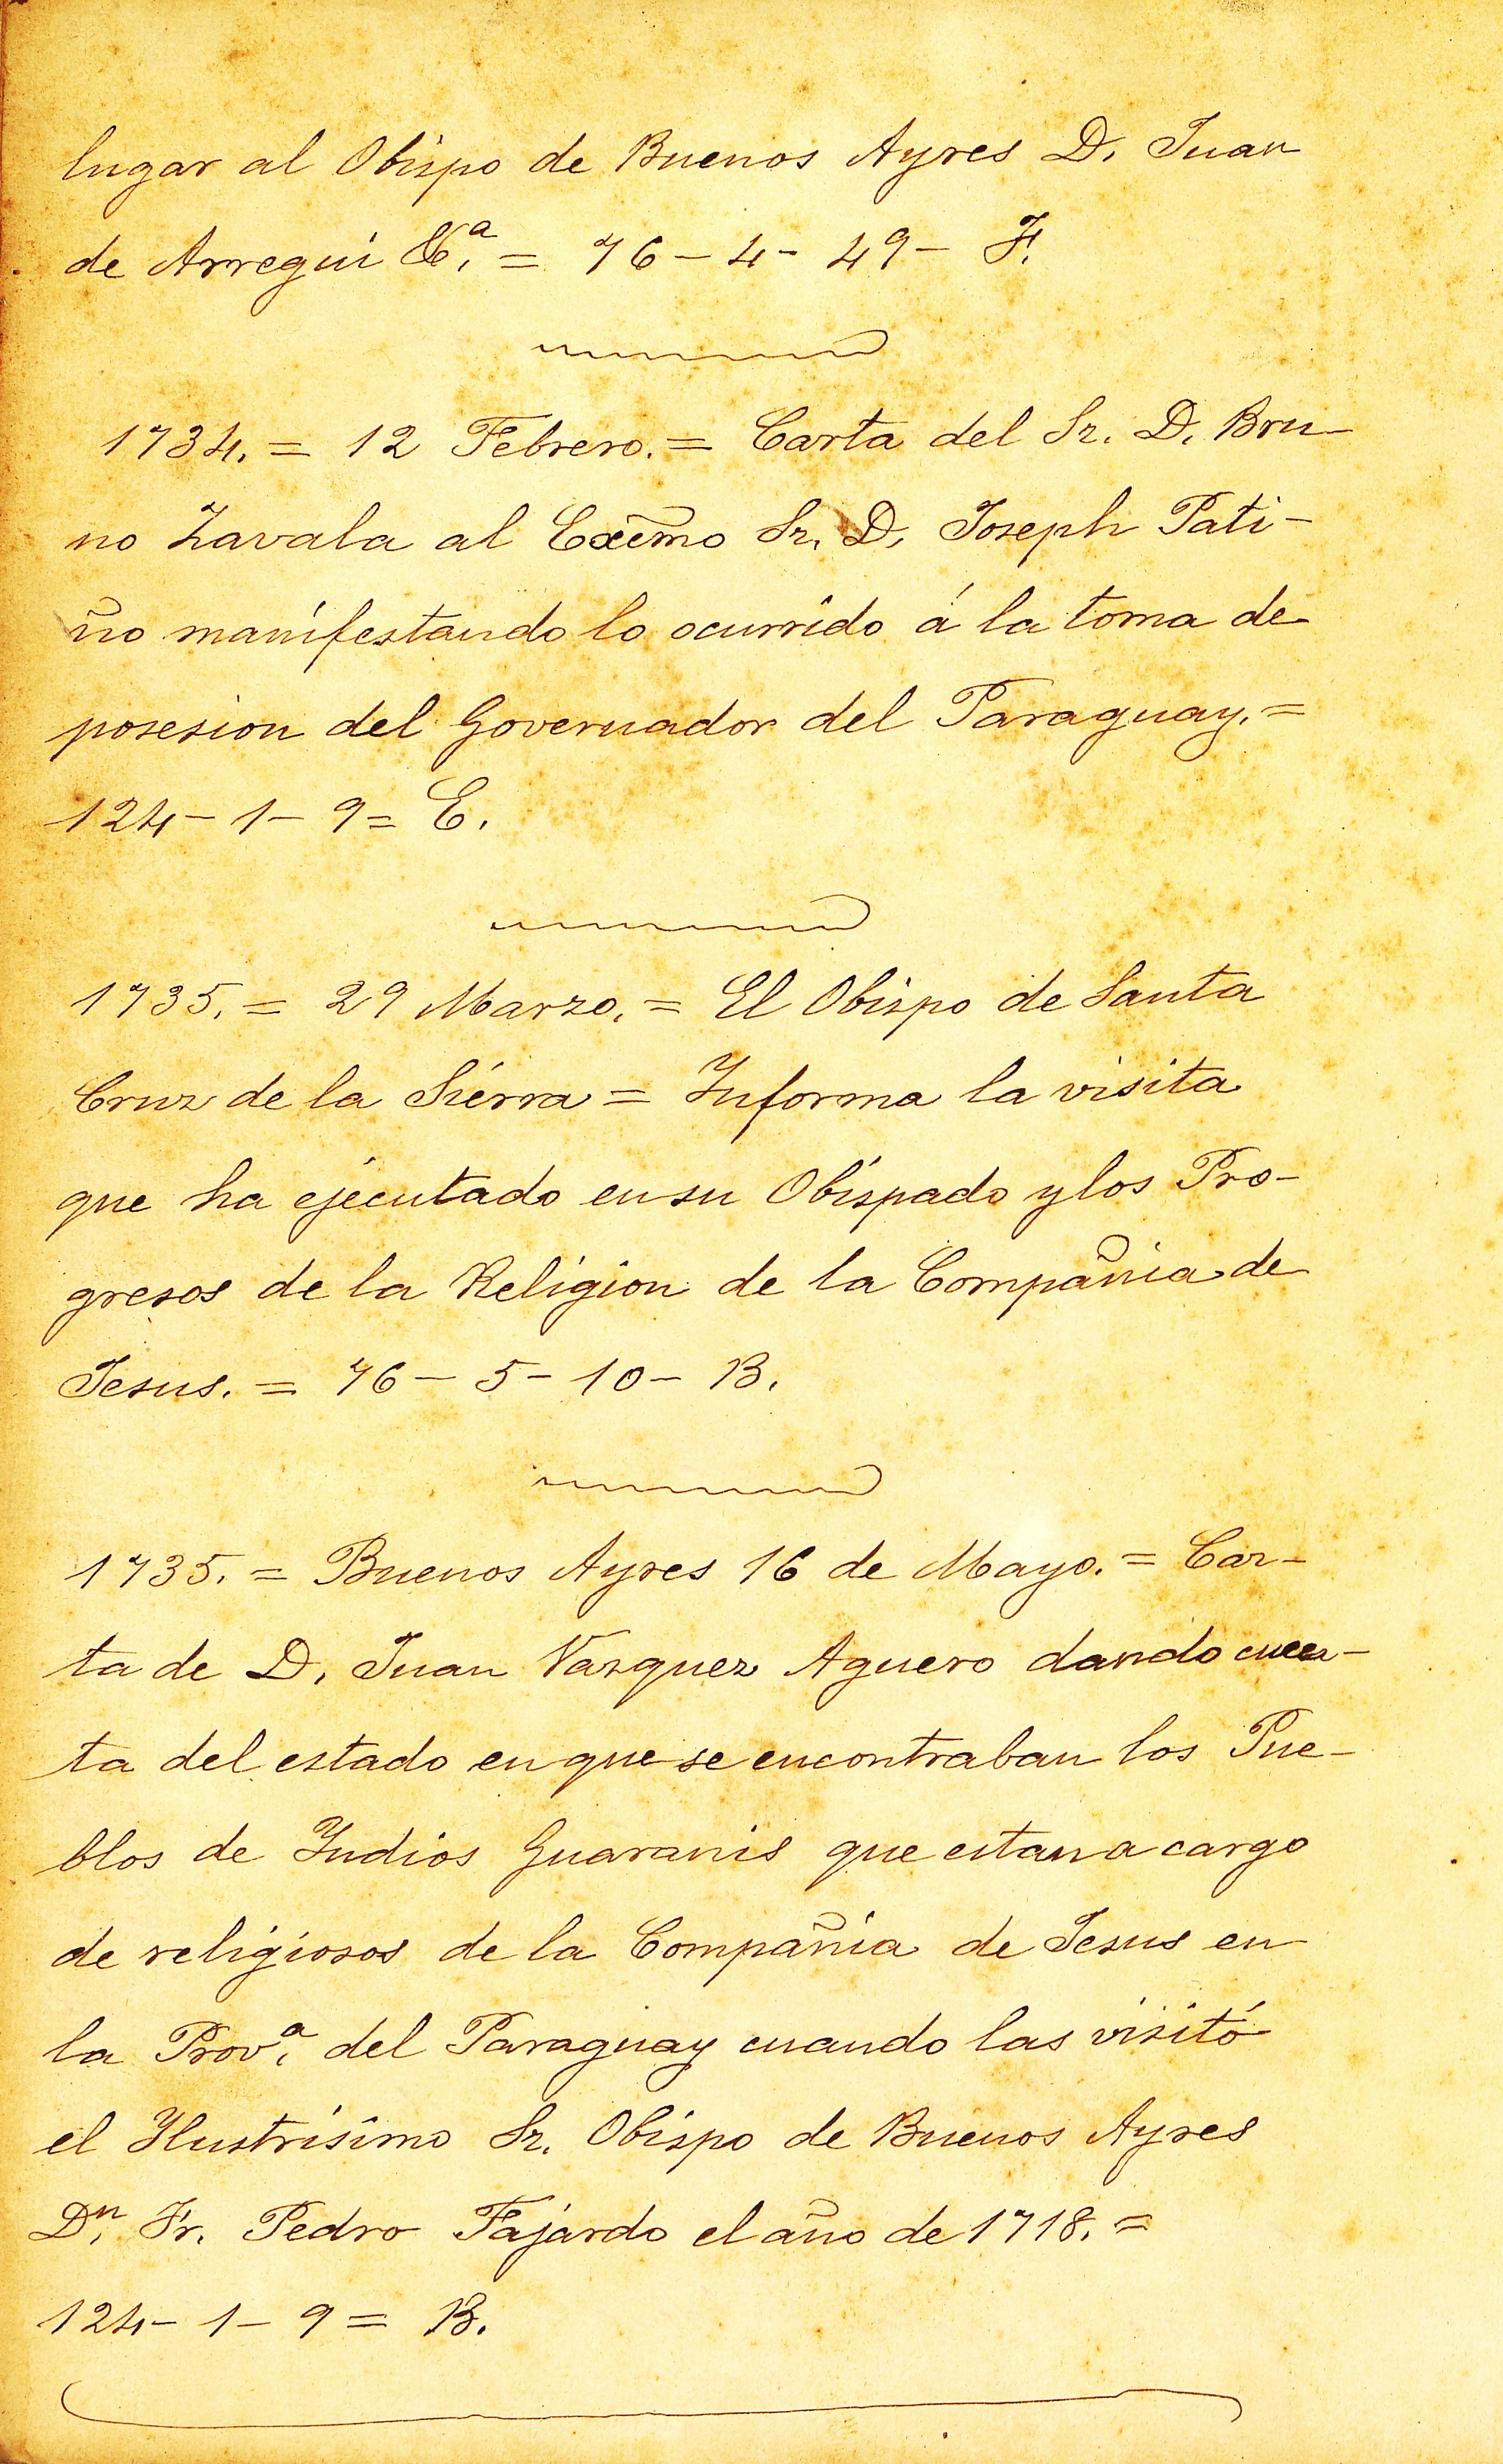 lugar al Obispo de Buenos Ayres D. Juan
de Arregui &.ª = 76 - 4 - 49 - F.
1734. = 12 Febrero. = Carta del Sr. D. Bru-
no Zavala al Exc̃mo Sr. D. Joseph Pati-
ño manifestando lo ocurrido á la toma de
posesion del Governador del Paraguay. =
124 - 1 - 9 = E.
1735. = 29 Marzo. = El Obispo de Santa
Cruz de la Siérra = Informa la visita
que ha ejecutado en su Obispado y los Pro-
gresos de la Religion de la Compañia de
Jesus. = 76 - 5 - 10 - B.
1735. = Buenos Ayres 16 de Mayo. = Car-
ta de D. Juan Vazquez Aguero dando cuen-
ta del estado en que se encontraban los Pue-
blos de Indios Guaranis que estan a cargo
de religiosos de la Compañia de Jesus en
la Prov.ª del Paraguay cuando las visitó
el Ilustrisimo Sr. Obispo de Buenos Ayres
D.ⁿ Fr. Pedro Fajardo el año de 1718. =
124 - 1 - 9 = B.